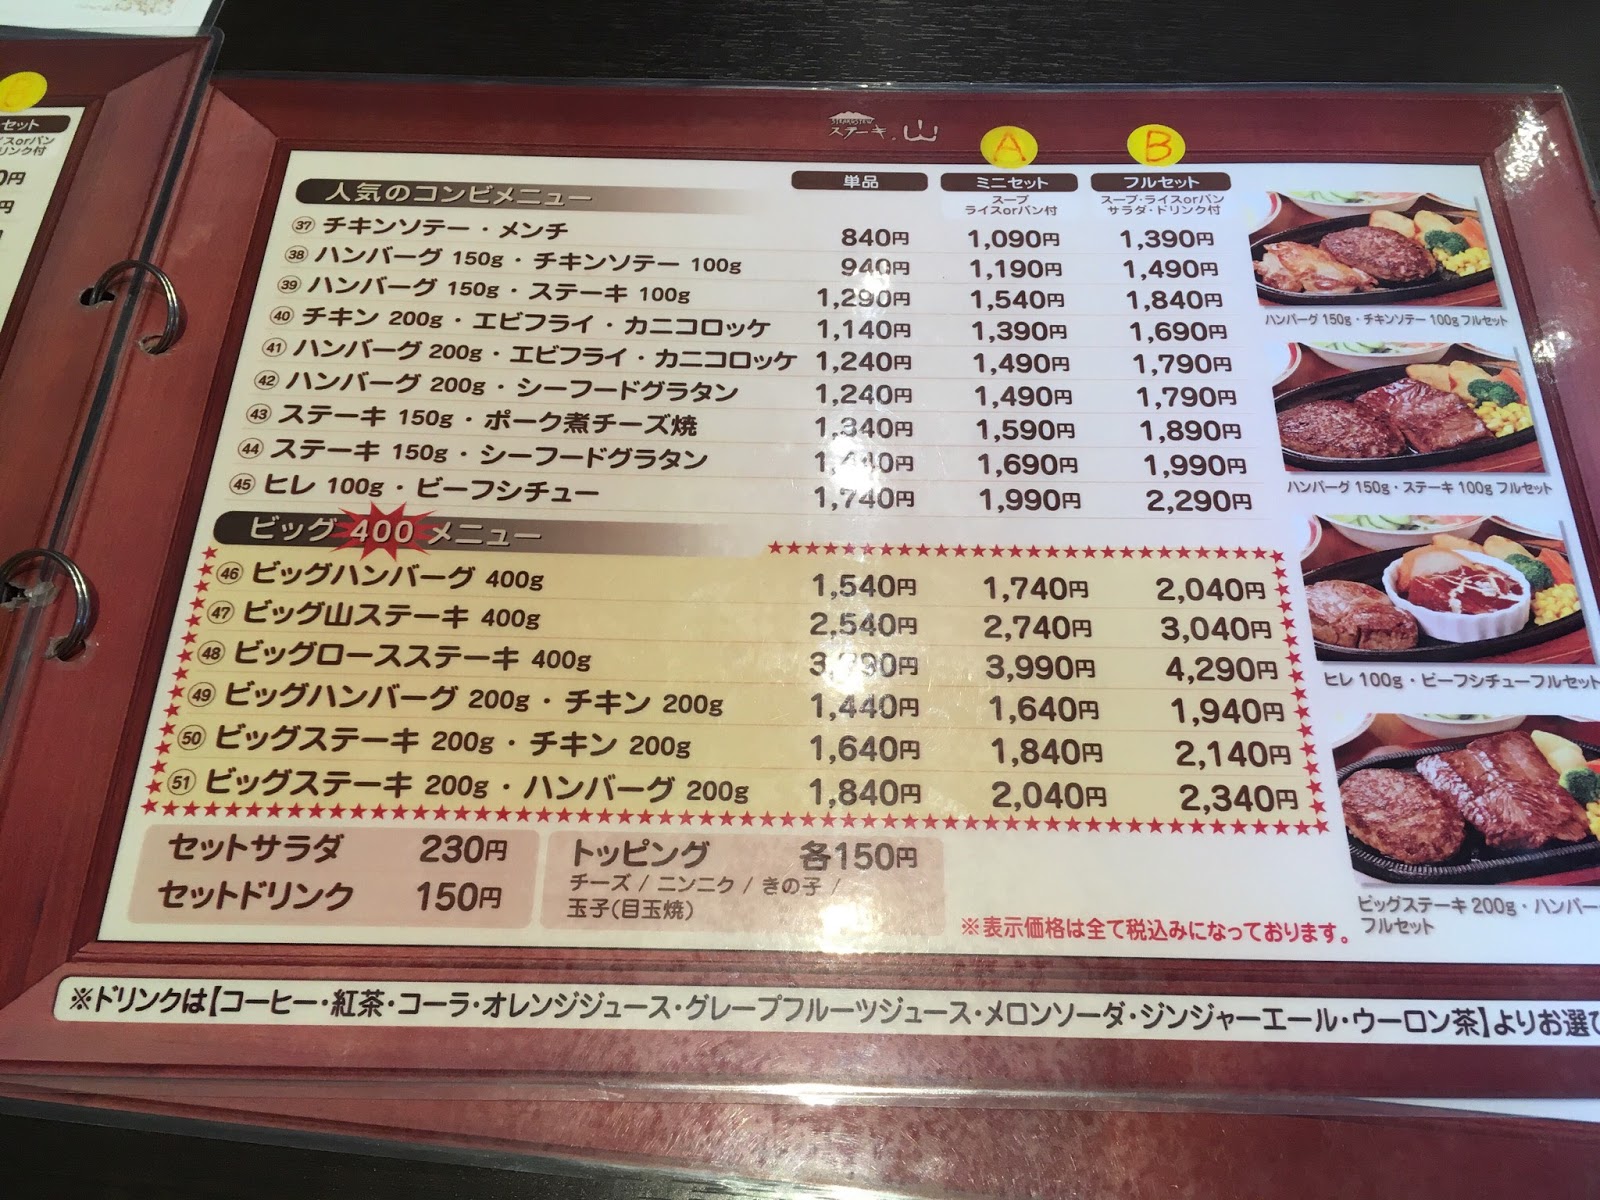 B
セット
イスorパン
リンク付
0円
円
STEAK&STEW
ステーキ.山
A
B
人気のコンビメニュー 単品 ミニセット フルセット
スープ
ライスorパン付
スープ・ライスorパン
サラダ・ドリンク付
㊲ チキンソテー・メンチ 840円 1,090円 1,390円
㊳ ハンバーグ 150g・チキンソテー 100g 940円 1,190円 1,490円
㊴ ハンバーグ 150g・ステーキ 100g 1,290円 1,540円 1,840円
㊵ チキン 200g・エビフライ・カニコロッケ 1,140円 1,390円 1,690円
㊶ ハンバーグ 200g・エビフライ・カニコロッケ 1,240円 1,490円 1,790円
㊷ ハンバーグ 200g・シーフードグラタン 1,240円 1,490円 1,790円
㊸ ステーキ 150g・ポーク煮チーズ焼 1,340円 1,590円 1,890円
㊹ ステーキ 150g・シーフードグラタン 1,690円 1,990円
㊺ ヒレ 100g・ビーフシチュー 1,740円 1,990円 2,290円
ビッグ 400 メニュー
㊻ ビッグハンバーグ 400g 1,540円 1,740円 2,040円
㊼ ビッグ山ステーキ 400g 2,540円 2,740円 3,040円
㊽ ビッグロースステーキ 400g 3,990円 4,290円
㊾ ビッグハンバーグ 200g・チキン 200g 1,440円 1,640円 1,940円
㊿ ビッグステーキ 200g・チキン 200g 1,640円 1,840円 2,140円
51 ビッグステーキ 200g・ハンバーグ 200g 1,840円 2,040円 2,340円
セットサラダ 230円
セットドリンク 150円
トッピング 各150円
チーズ / ニンニク / きの子 /
玉子(目玉焼)
※表示価格は全て税込みになっております。
ハンバーグ 150g・チキンソテー 100g フルセット
ハンバーグ 150g・ステーキ 100g フルセット
ヒレ 100g・ビーフシチューフルセット
ビッグステーキ 200g・ハンバー
フルセット
※ドリンクは【コーヒー・紅茶・コーラ・オレンジジュース・グレープフルーツジュース・メロンソーダ・ジンジャーエール・ウーロン茶】よりお選び